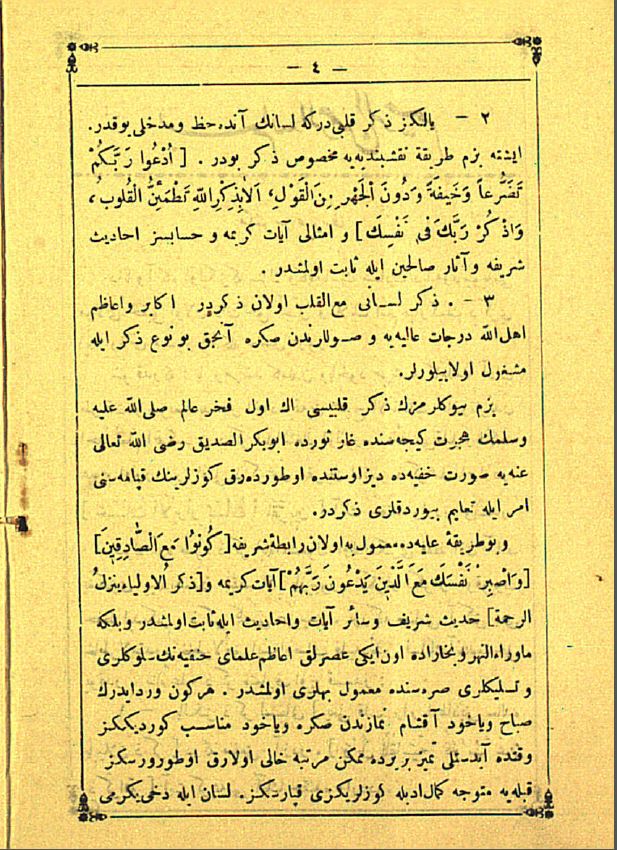 — ٤ —
٢ — یالكز ذكر قلبی‌دركه لسانك آنده‌ حظ ومدخلی یوقدر.
ایشته بزم طریقهٔ نقشبندیه‌یه مخصوص ذكر بودر . [ اُدْعُوا رَبَّكُمْ
تَضَرُّعاً وَخَيفَةً وَدُونَ اْلجَهْرِ مِنَ الْقَوْلِ، اَلاَ بِذِكْرِ اللّٰهِ تَطْمَئِنُّ الْقُلوبُ،
وَاذْكُرْ رَبَّكَ فِى نَفْسِكَ ] و امثالی آیات كریمه و حسابسز احادیث
شریفه وآثار صالحین ایله ثابت اولمشدر .
٣ — . ذكر لسانی مع‌القلب اولان ذكردر اكابر واعاظم
اهل‌الله درجات عالیه‌یه وصوللرندن صكره آنجق بو نوع ذكر ایله
مشغول اولابیلورلر.
بزم بیوكلرمزك ذكر قلبیسی اك اول فخر عالم صلی‌الله علیه
وسلمك هجرت كیجه‌سنده غار ثورده ابوبكر الصدیق رضی الله تعالی
عنه‌یه صورت خفیه‌ده دیز اوستنده اوطورده‌رق كوزلرینك قپامه‌سنی
امر ایله تعلیم بیوردقلری ذكردر.
وبو طریقهٔ علیه‌ده معمول به اولان رابطهٔ شریفه [ كُونُوا مَعَ الصَّادِقِينَ]
[وَاصْبِرْ نَفْسَكَ مَعَ الَّذِينَ يَدْعُونَ رَبَّهُمْ ] آیات كریمه و [ذكر اُلاولیاء ینزلُ
الرحمة] حدیث شریف وسائر آیات واحادیث ایله ثابت اولمشدر وبلكه
ماوراءالنهر وبخاراده اون ایكی عصرلق اعاظم علمای حنفیه‌نك سلوكلری
وتسلیكلری صره‌سنده معمول بهلری اولمشدر . هركون ورد ایدرك
صباح ویاخود آقشام نمازندن صكره ویاخود مناسب كوردیككز
وقتده آبدستلی تمیز بریرده ممكن مرتبه خالی اولارق اوطورورسكز
قبله‌یه متوجه كمال ادبله كوزلریكزی قپارسكز. لسان ایله دخی یكرمی